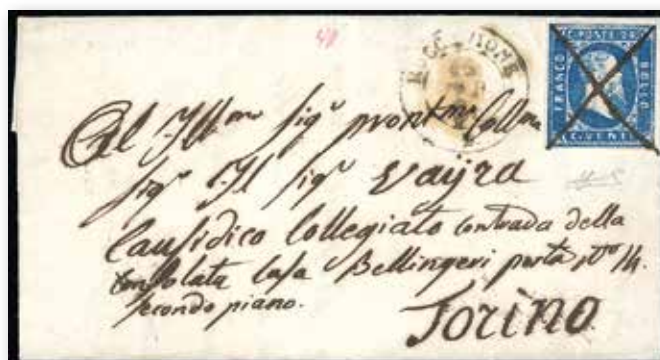 C. POSTE 20
FRANCO
BOLLO
C. VENTI
Al Ill.mo Sig.r pront.mo
Sig.r Il Sig.r Vayra
Causidico Collegiato Contrada della
Consolata Casa Bellingeri porta N.o 14.
Secondo piano.
Torino